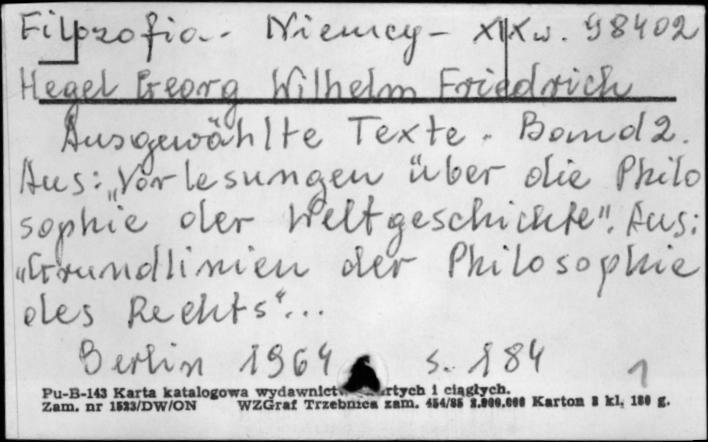 Filozofia - Niemcy - XIX w. 98402
Hegel Georg Wilhelm Friedrich
Ausgewählte Texte. Band 2.
Aus: „Vorlesungen über die Philo
sophie der Weltgeschichte". Aus:
„Grundlinien der Philosophie
des Rechts"...
Berlin 1964 s. 184 1
Pu-B-143 Karta katalogowa i ciągłych.
Zam. nr 1523/DW/ON WZGraf Trzebnica zam. 454/85 2.000.000 Karton 2 kl. 180 g.